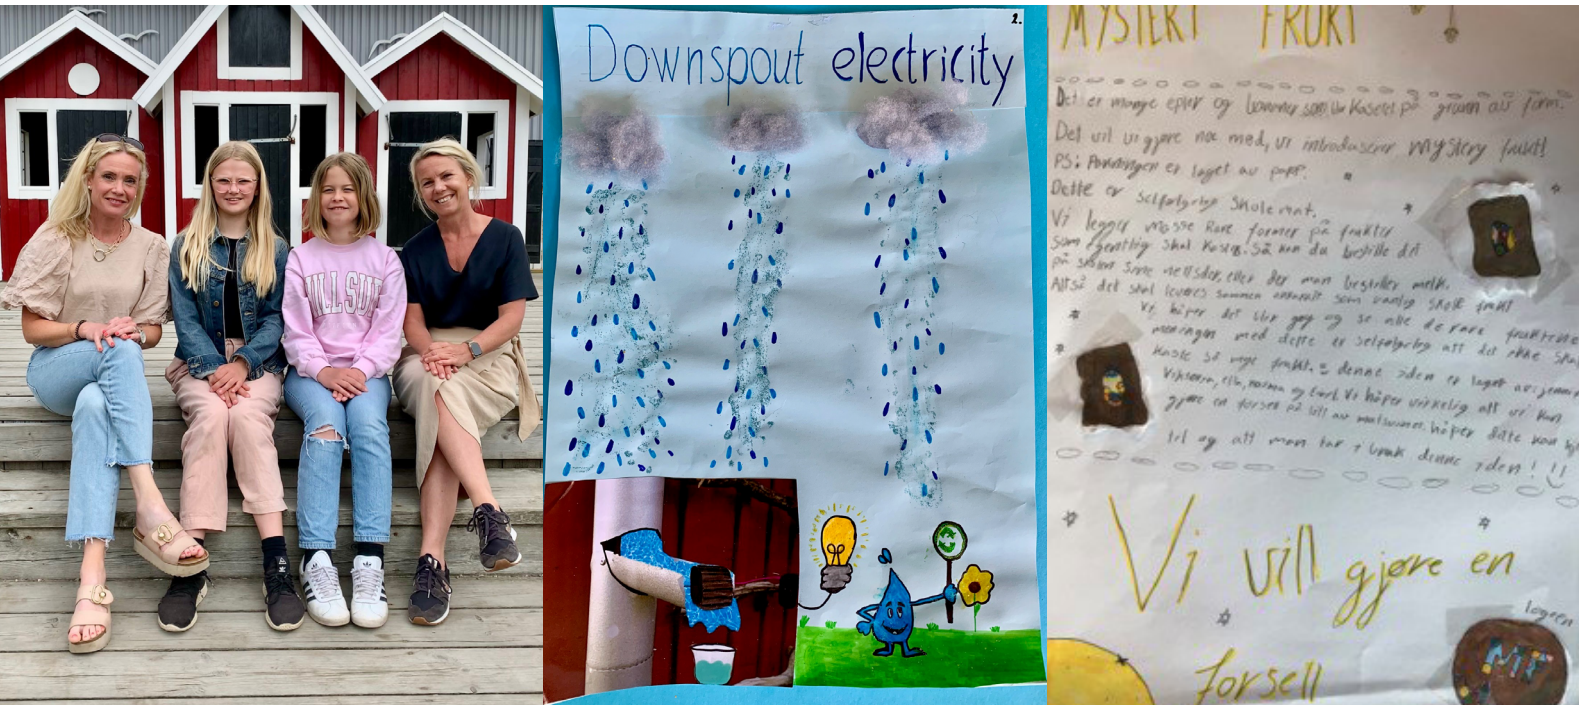 HILLSUI
2.
Downspout electricity
MYSTERY FRUKT
Det er mange epler og bananer som blir kastet på grunn av form.
Det vil vi gjøre noe med, vi introduserer mystery frukt!
PS: Pakningen er laget av papp.
Dette er selfølgelig skolemat.
Vi legger masse Rare former på frukter
som egentlig skal kastes. Så kan du bestille det
på skolen sine nettsider, eller der man bestiller melk.
Altså det skal leveres sammen som vanlig skole frukt
Vi håper det blir gøy og se alle de rare fruktene
meningen med dette er selfølgelig att det ikke skal
kaste så mye frukt. denne iden er laget av
Viktoria, ella, og Vi håper virkelig att vi kan
gjøre en forsell på litt av matsvinnet, håper dette kan
til og att man tar i bruk denne iden!!!
Vi vill gjøre en
forsell
logoen
MF